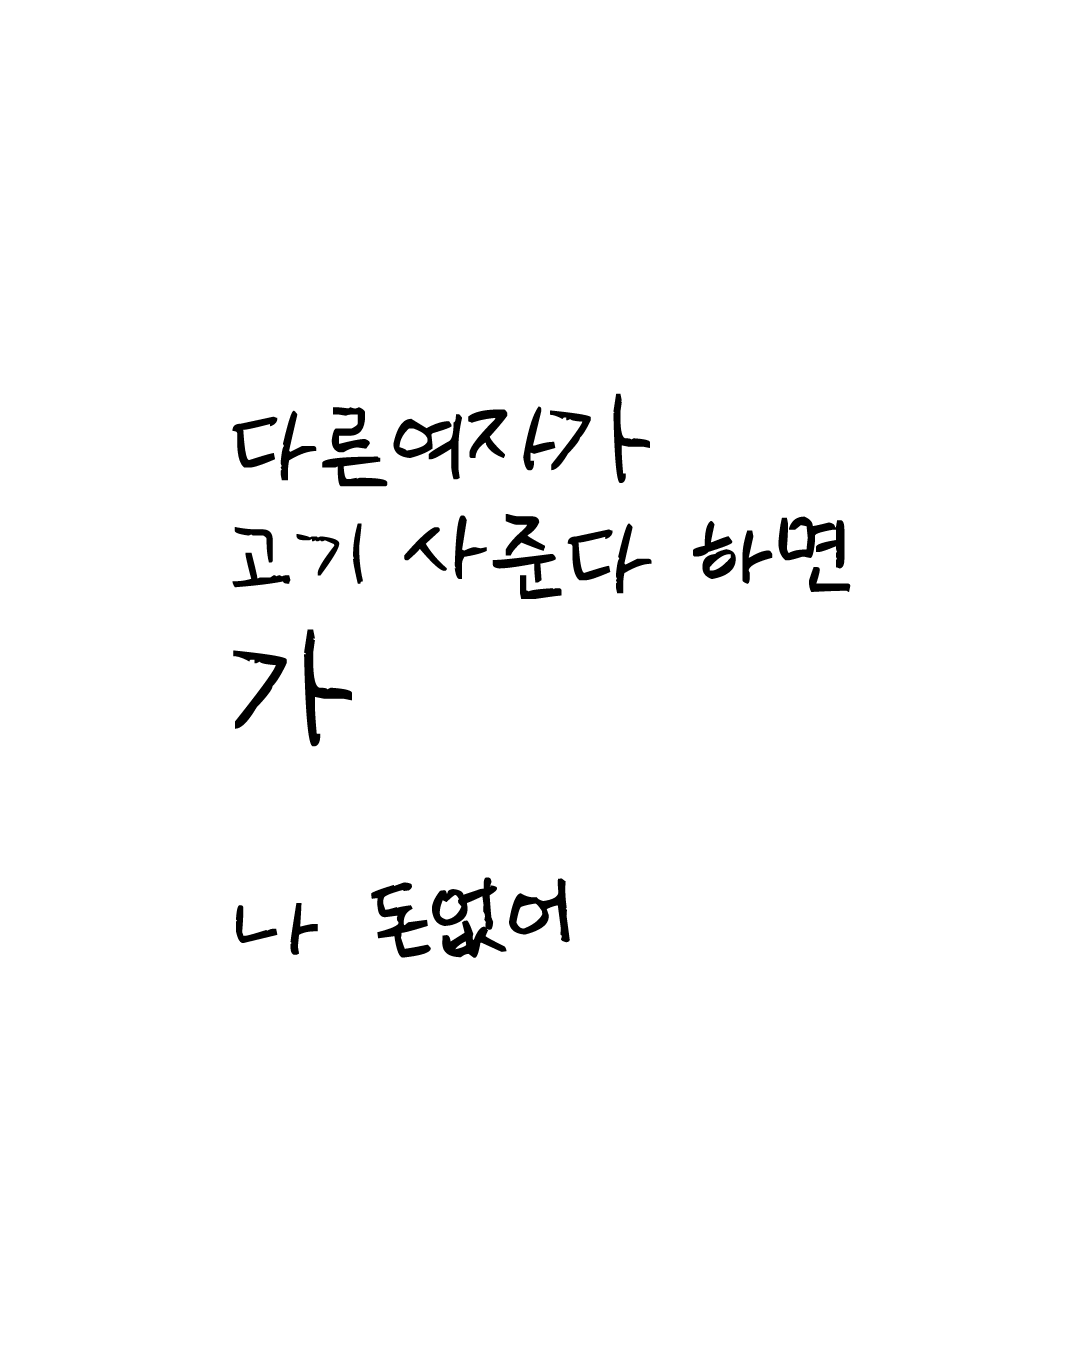 다른여자가
고기 사준다 하면
가
나 돈없어